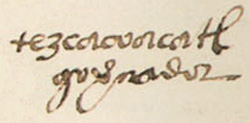 tezcacovacatl
governador